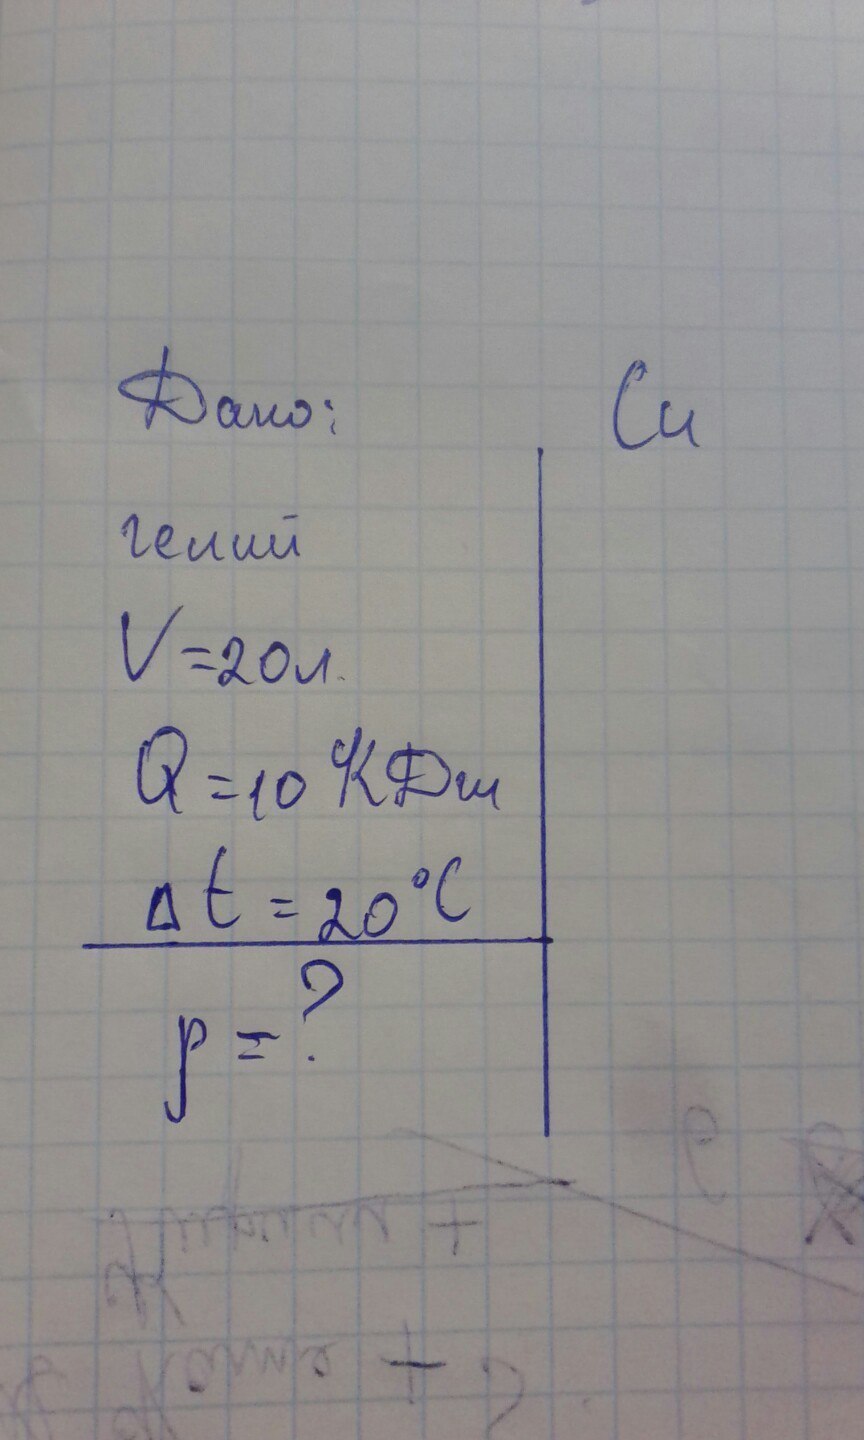 Дано:
Си
гелий
V=20л.
Q=10 КДж
Δt=20°C
p=?